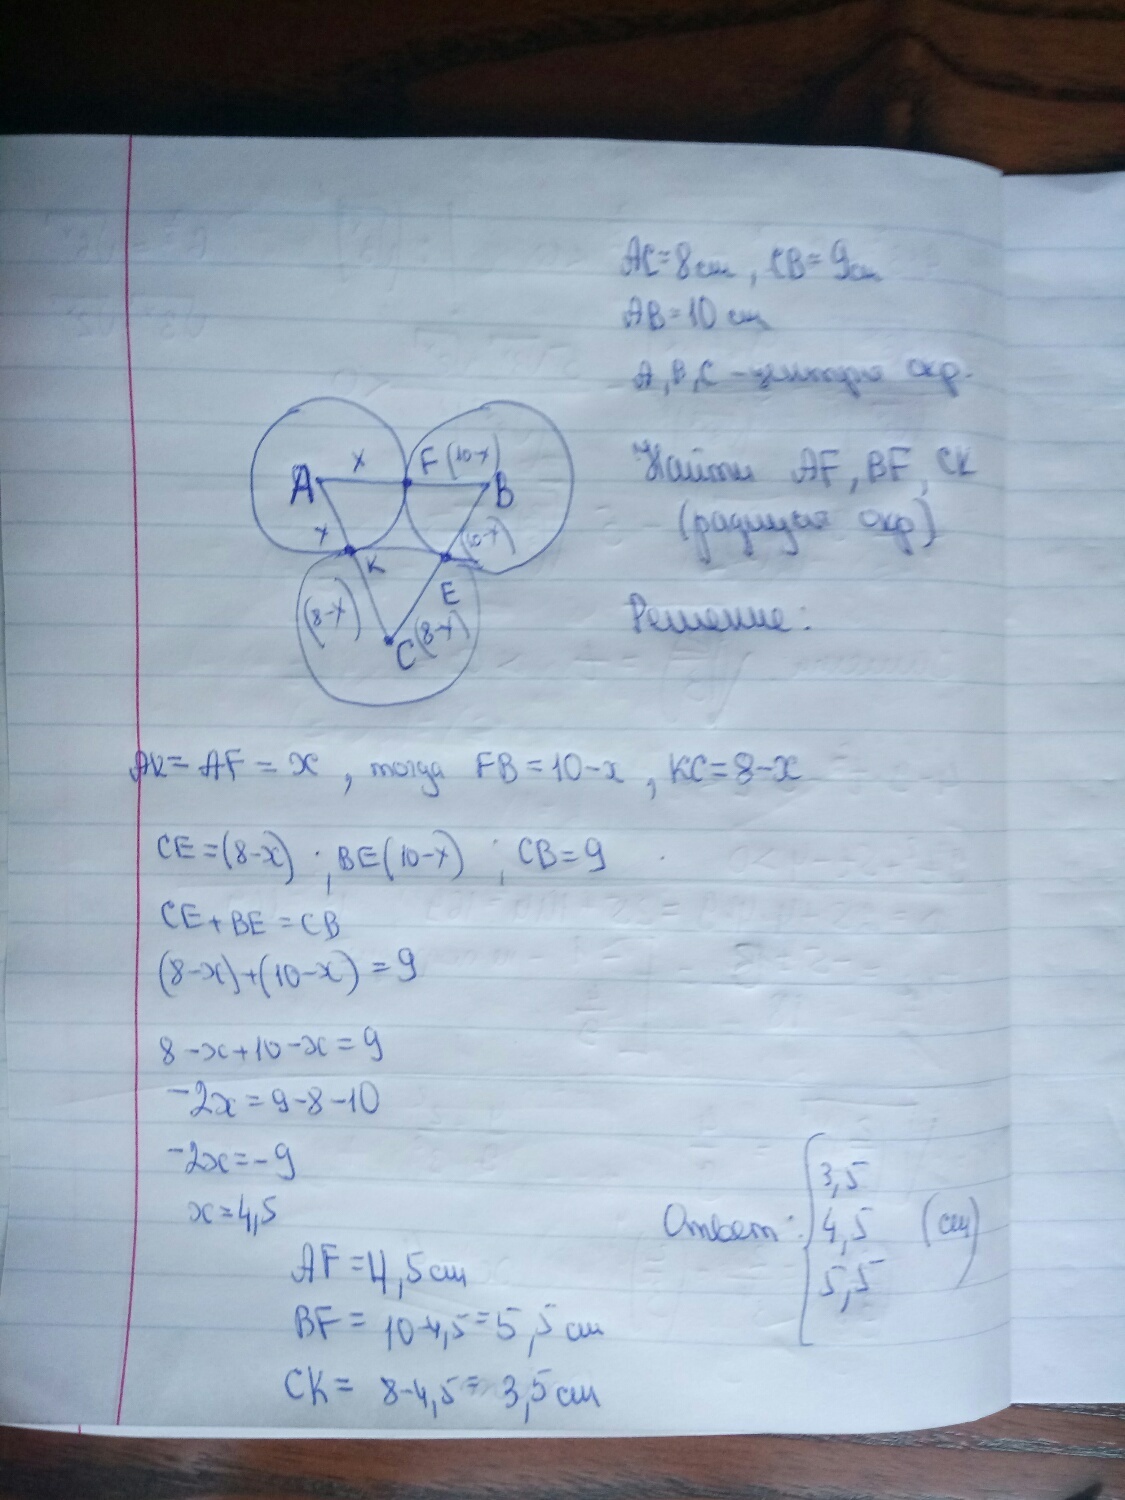 AC=8см, CB=9см
AB=10см
A,B,C-центры окр.
Найти AF, BF, CK
(радиусы окр)
Решение:
A x F (10-x) B
x K (10-x)
E
(8-x) C (8-x)
AK=AF=x, тогда FB=10-x, KC=8-x
CE=(8-x); BE(10-x); CB=9
CE+BE=CB
(8-x)+(10-x)=9
8-x+10-x=9
-2x=9-8-10
-2x=-9
x=4,5
AF=4,5см
BF=10-4,5=5,5см
CK=8-4,5=3,5см
Ответ: 3,5
4,5 (см)
5,5